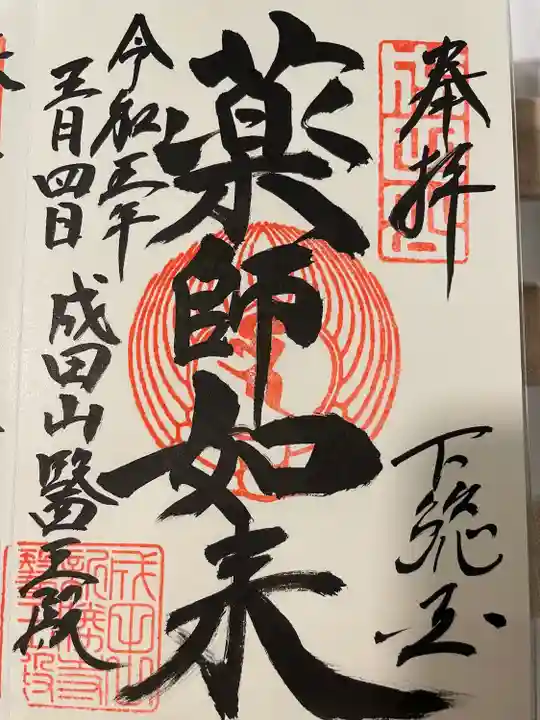 奉拝
下総国
薬師如来
令和五年
五月四日
成田山醫王殿
成田山
新勝寺
醫王殿